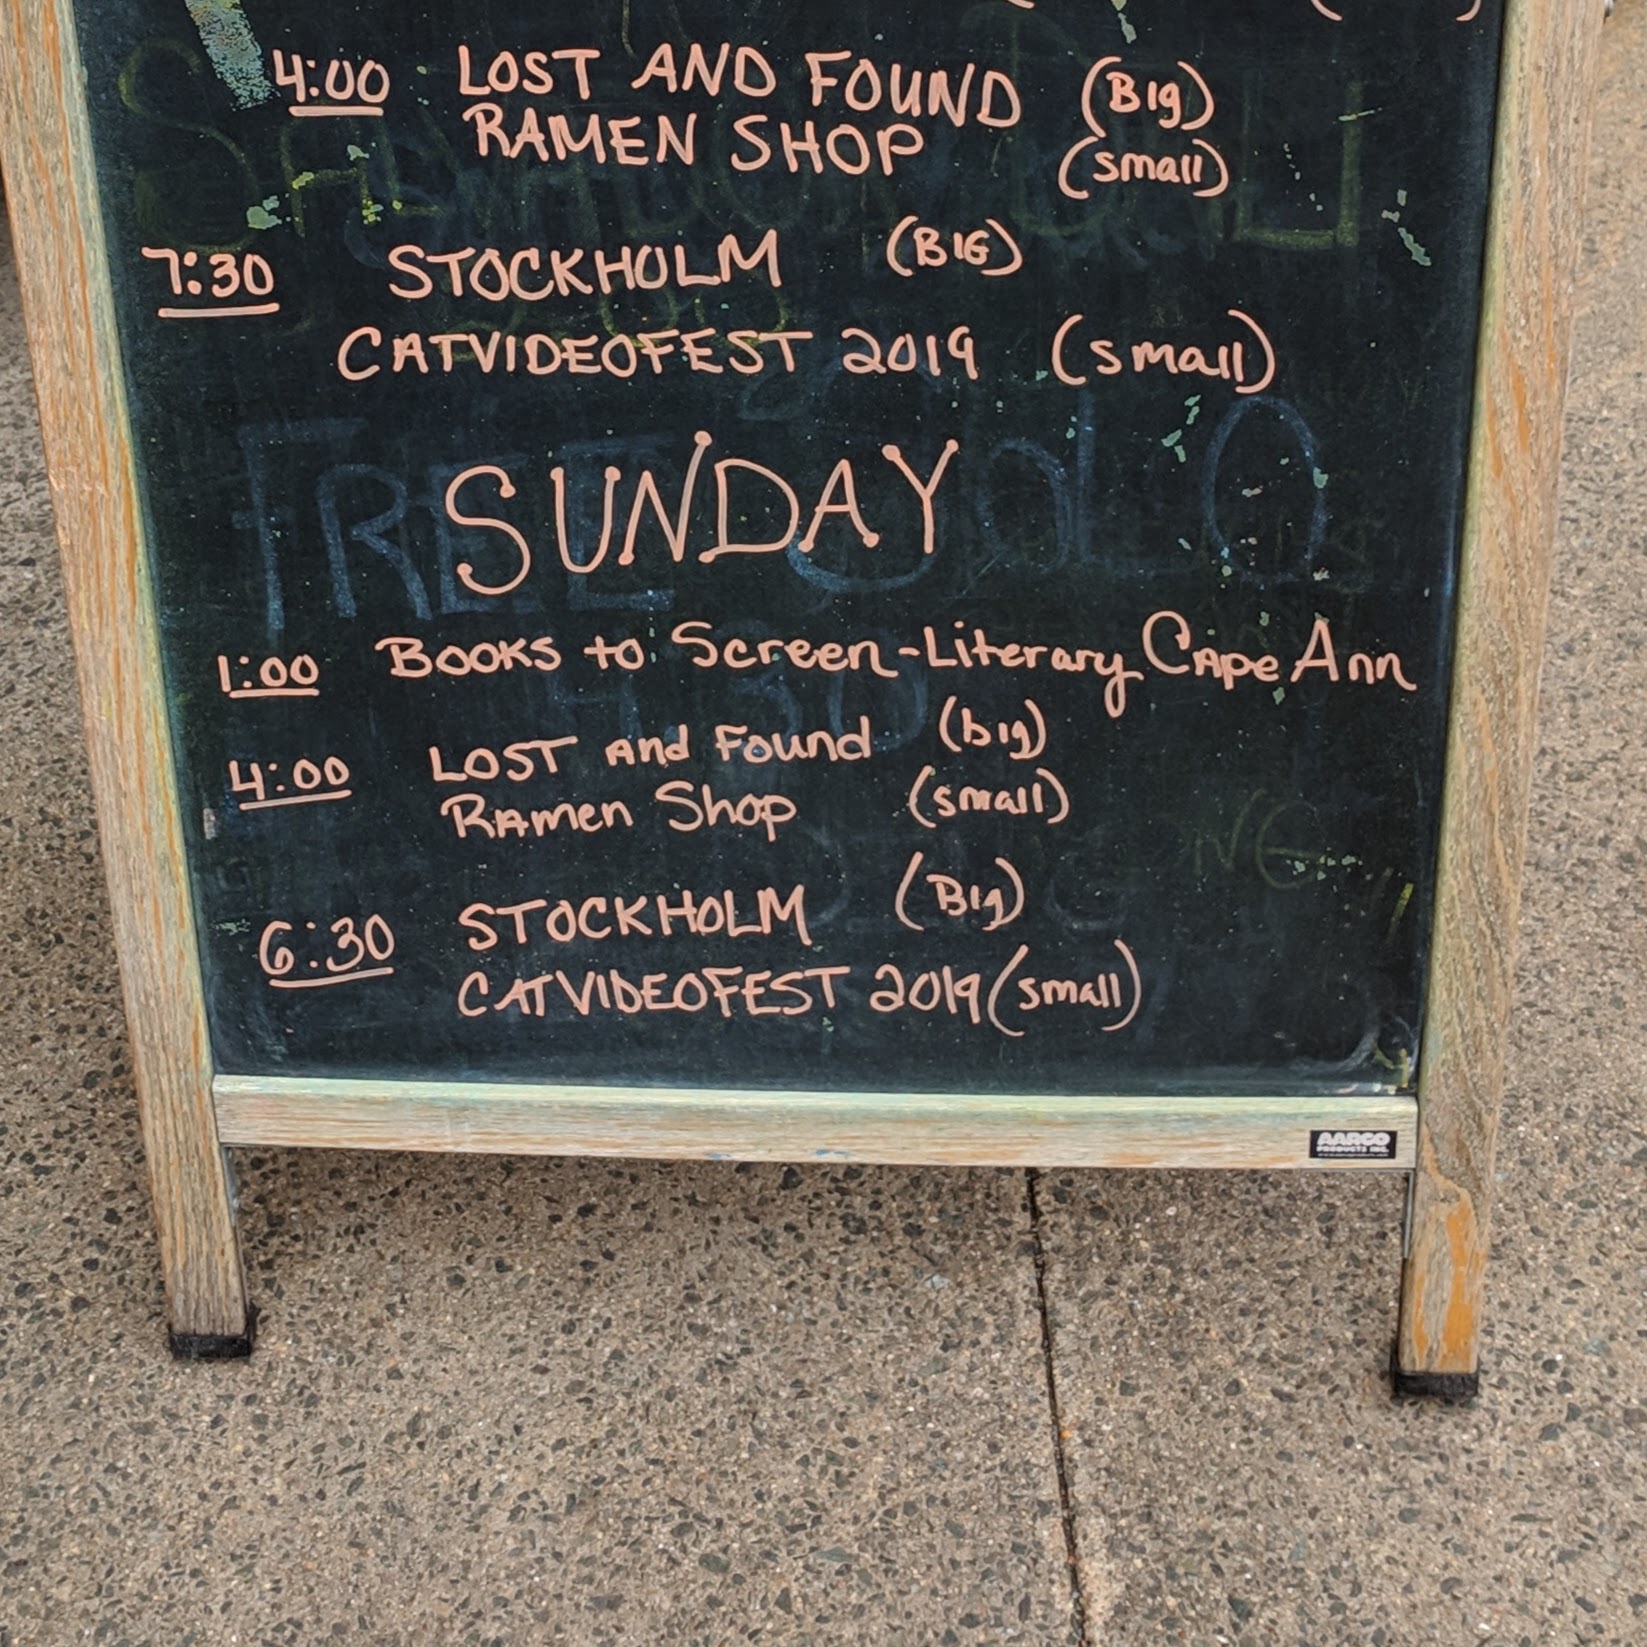 4:00 LOST AND FOUND (Big)
RAMEN SHOP (small)
7:30 STOCKHOLM (BIG)
CATVIDEOFEST 2019 (small)
FREE SOLO
SUNDAY
1:00 BOOKS to Screen-Literary Cape Ann
4:30
4:00 LOST And Found (big)
Ramen Shop (small)
6:30 STOCKHOLM (Big)
CATVIDEOFEST 2019 (small)
AARCO
PRODUCTS INC.